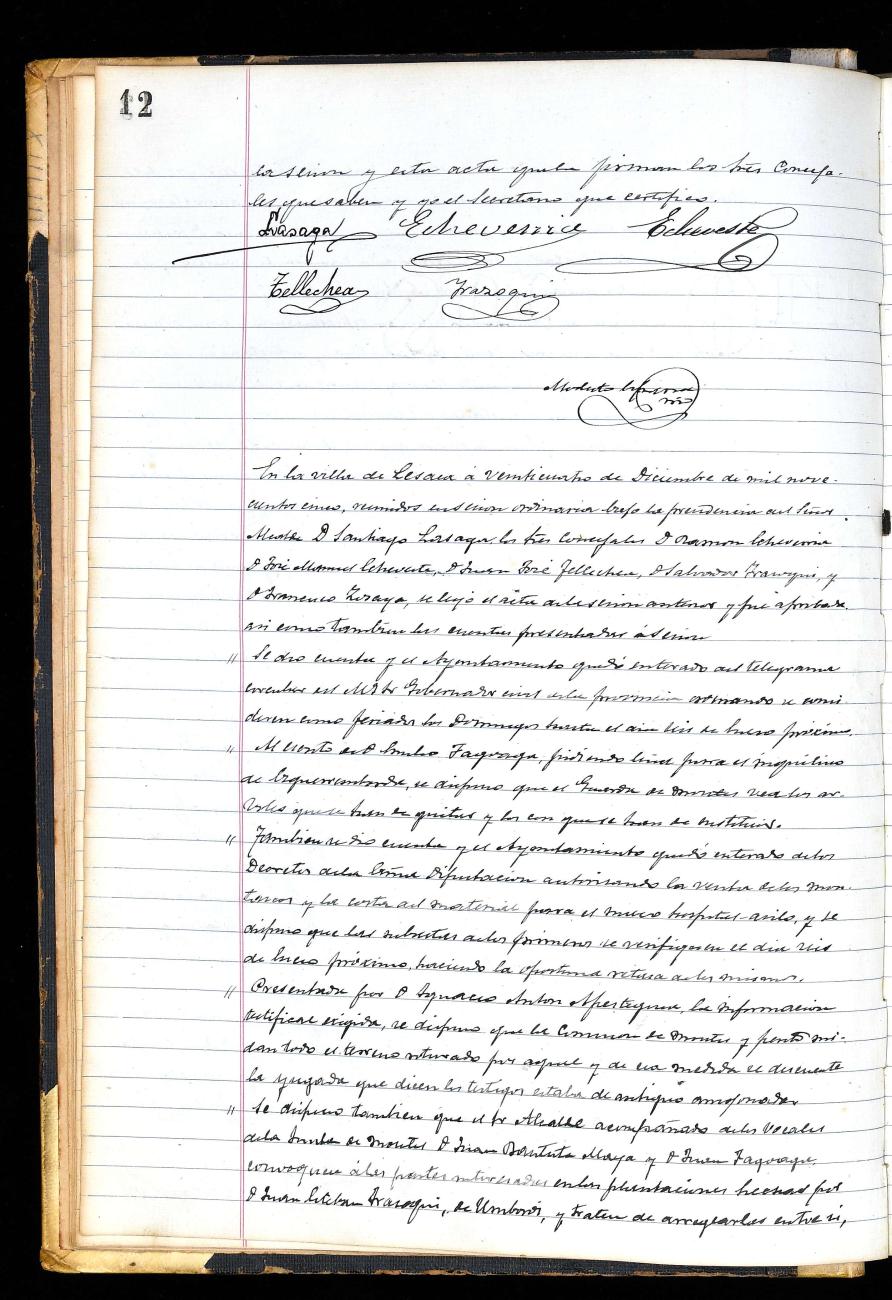 12
la sesion y esta acta que la firman los Sres Conceja-
les que saben y yo el Secretario que certifico.
Lasaga Echeverria Echeveste
Tellechea Irazoqui
Modesto
En la villa de Lesaca á veinticuatro de Diciembre de mil nove-
cientos cinco, reunidos en sesion ordinaria bajo la presidencia del Señor
Alcalde D Santiago Lasaga los Sres Concejales D Ramon Echeverria
D José Manuel Echeveste, D Juan José Tellechea, D Salvador Irazoqui, y
D Francisco, se leyó el acta de la sesion anterior y fué aprobada
asi como tambien las cuentas presentadas á sesion
" Se dió cuenta y el Ayuntamiento quedó enterado del telegrama
circular del Gobernador civil de la provincia ordenando se consi
deren como feriados los Domingos hasta el dia seis de Enero próximo.
" Al escrito de D Emilio Fagoaga, pidiendo para el inquilino
de, se dispuso que el Guarda de montes vea los ar-
boles que se han de quitar y los con que se han de sustituir.
" Tambien se dió cuenta y el Ayuntamiento quedó enterado de los
Decretos de la Exma Diputacion autorizando la venta de los mon
tascos y la corta del material para el nuevo hospital asilo, y se
dispuso que las subastas de los primeros se verifiquen el dia seis
de Enero próximo, haciendo la oportuna de los mismos.
" Presentada por D Ignacio Anton Apestegua, la informacion
testifical exigida, se dispuso que la Comision de montes y perito mi-
dan todo el terreno roturado por aquel y de esa medida se descuente
la yugada que dicen los testigos estaba de antiguo amojonada
" Se dispuso tambien que el Sr Alcalde acompañado de los Vocales
de la Junta de montes D Juan Bautista Maya y D Juan Fagoaga,
convoquen á las partes interesadas en las plantaciones hechas por
D Juan Esteban Irazoqui, de, y traten de arreglarlas entre si,